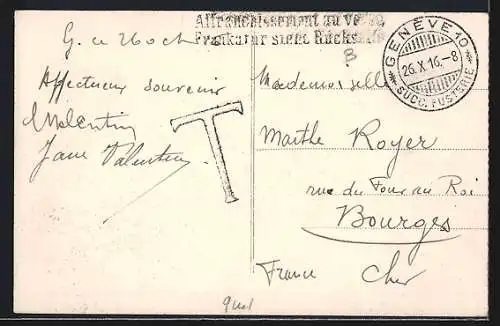 Affranchissement au verso
Frankatur siehe Rückseite
GENÈVE 10
26.X.16.-8
SUCC. FUSTERIE
B
Affectueux souvenir
Valentin
Jane Valentin
T
Mademoiselle
Marthe Royer
rue du Four au Roi
Bourges
France Cher